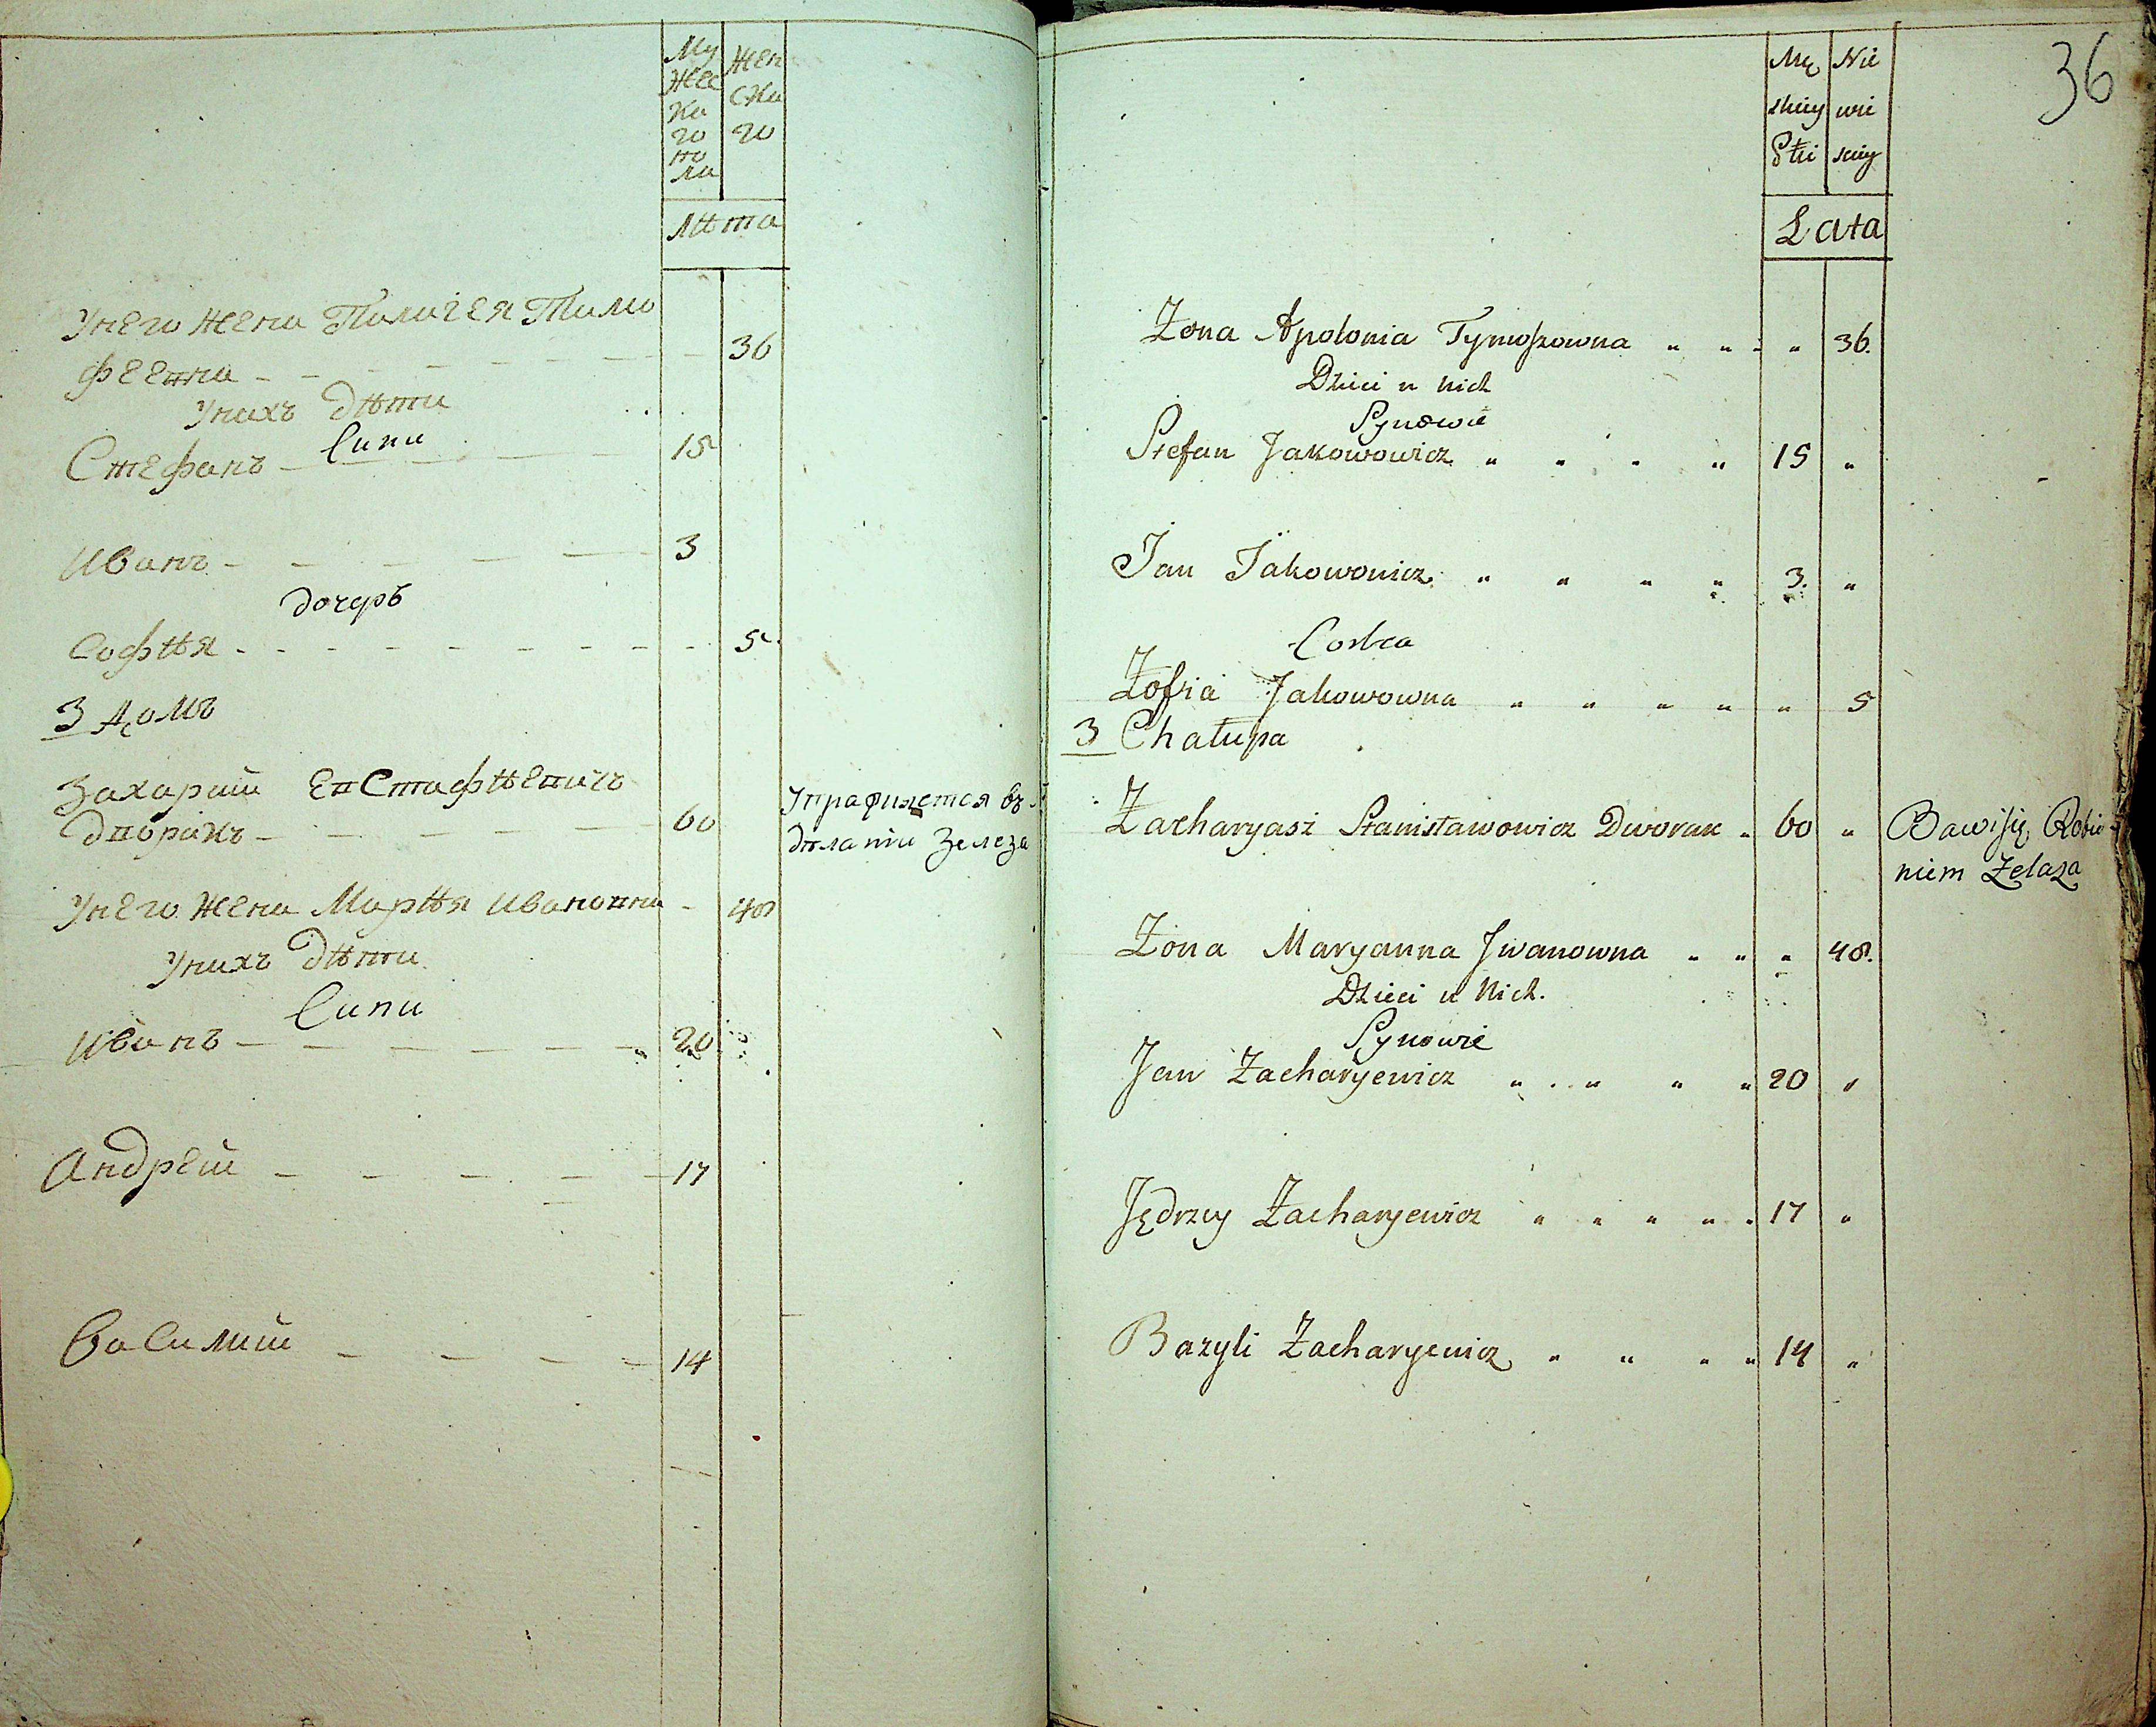 Му Жен
жес ска
ка го
го
по
ла
Лѣта
Унего жена Палагея Тимо
феевна 36
Унихъ дѣти
Сини
Стефанъ 15
Иванъ 3
дочерь
Софѣя 5
3 Домъ
Захарий Евстафѣевичъ
дворакъ 60
Упражняется въ
дѣланіи Зелеза
Унего жена Марѣя Ивановна 48
Унихъ дѣти
Сини
Иванъ 20
Андрей 17
Василий 14
36
Mę Nie
skiey wie
Płci sciey
Lata
Żona Apolonia Tymoszowna " " " " 36.
Dzieci u Nich
Synowie
Stefan Jakowowicz " " " " 15 "
Jan Jakowowicz " " " " 3. "
Corka
Zofia Jakowowna " " " " " 5
3 Chałupa
Zacharyasz Stanisławowicz Dworak " 60 " Bawi się Robie
niem Żelaza
Żona Maryanna Jwanowna " " " 48.
Dzieci u Nich.
Synowie
Jan Zacharyewicz " " " " 20 "
Jędrzey Zacharyewicz " " " " " 17 "
Bazyli Zacharyewicz " " " " 14 "